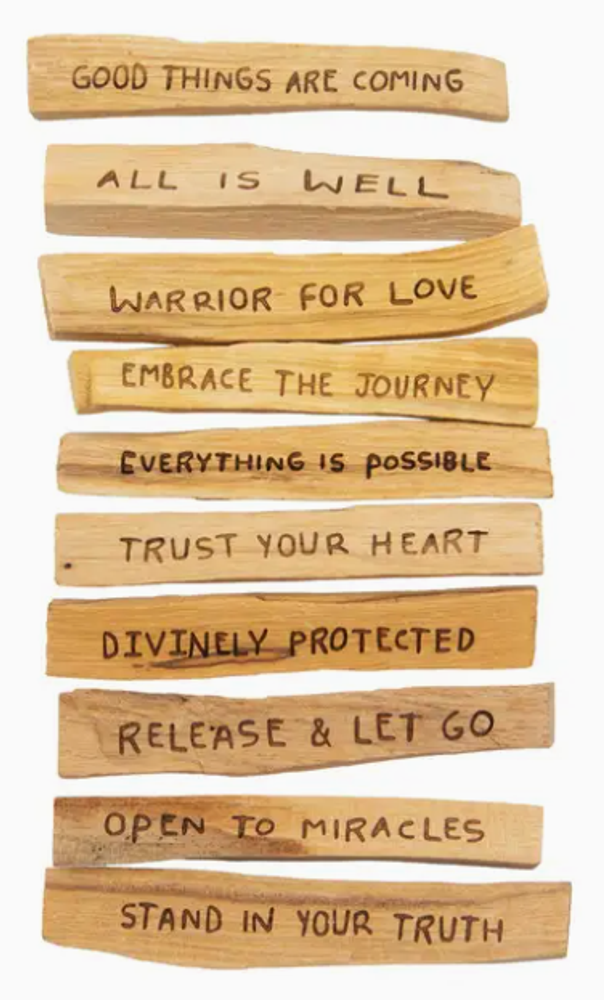 GOOD THINGS ARE COMING
ALL IS WELL
WARRIOR FOR LOVE
EMBRACE THE JOURNEY
EVERYTHING IS POSSIBLE
TRUST YOUR HEART
DIVINELY PROTECTED
RELEASE & LET GO
OPEN TO MIRACLES
STAND IN YOUR TRUTH